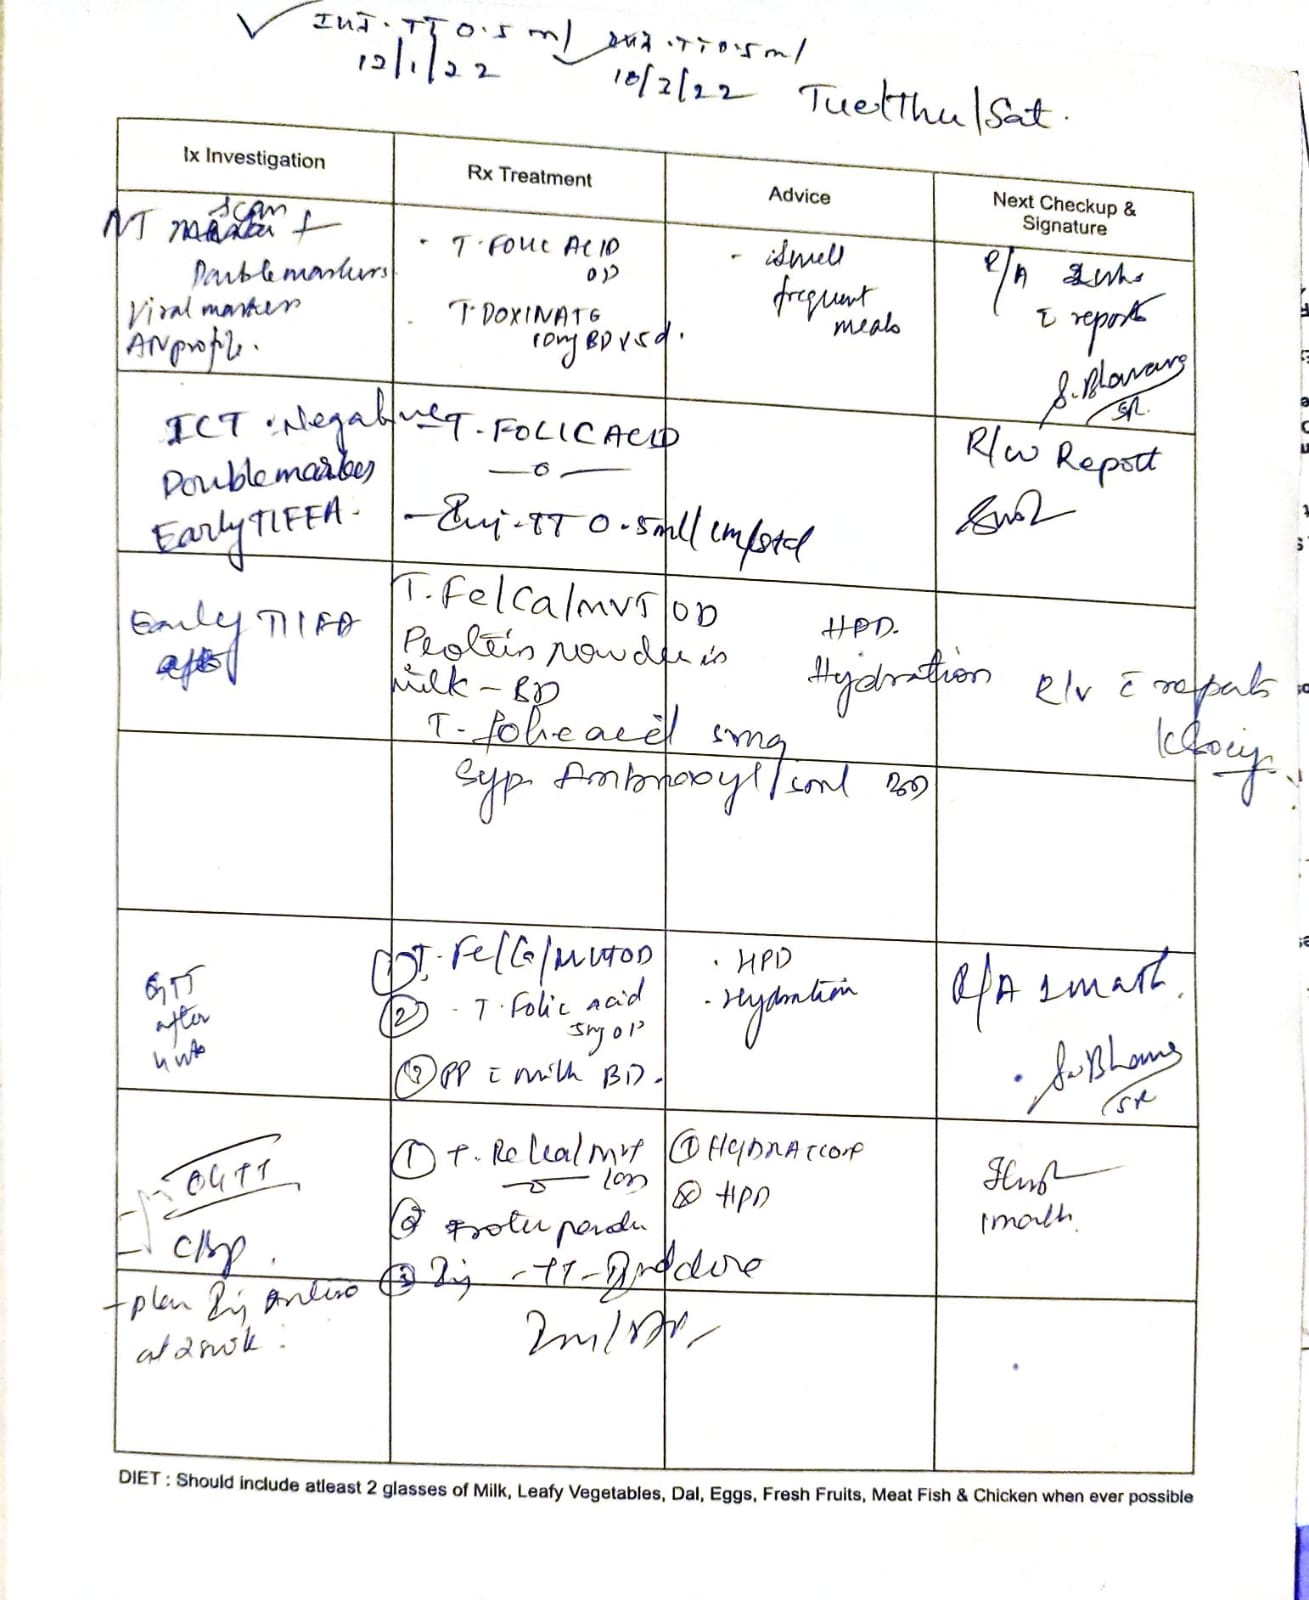 INJ. TT 0.5 ml INJ. TT 0.5 ml
12/1/22 10/2/22 Tue/Thu/Sat.
Ix Investigation Rx Treatment Advice Next Checkup & Signature
NT scan +
Double markers
Viral markers
AN profile.
· T. FOLIC ACID
OD
T. DOXINATE
10mg BD x 5d.
- Small
frequent
meals
R/A 2 wks
c̄ reports
S. Bhavans
SR.
ICT : Negative
Double marker
Early TIFFA.
T. FOLIC ACID
- Inj. TT 0.5ml/im/std
R/w Report
Early TIFFA
T. Fe/Ca/MVT OD
Protein powder in
milk - BD
T. folic acid 5mg
Syp Ambroxyl/5ml BD
HPD.
Hydration
R/v c̄ reports
GTT
after
4 wks
① T. Fe/Ca/MVT OD
② - T. Folic acid
5mg OD
③ PP c̄ milk BD.
· HPD
· Hydration
R/A 1 month.
SR
OGTT
CBP.
- plan Inj Anti D
at 28wk.
① T. Fe/Ca/MVT
② Protein powder
③ Inj - TT - 2nd dose
① HYDRATION
② HPD
1 month.
DIET : Should include atleast 2 glasses of Milk, Leafy Vegetables, Dal, Eggs, Fresh Fruits, Meat Fish & Chicken when ever possible